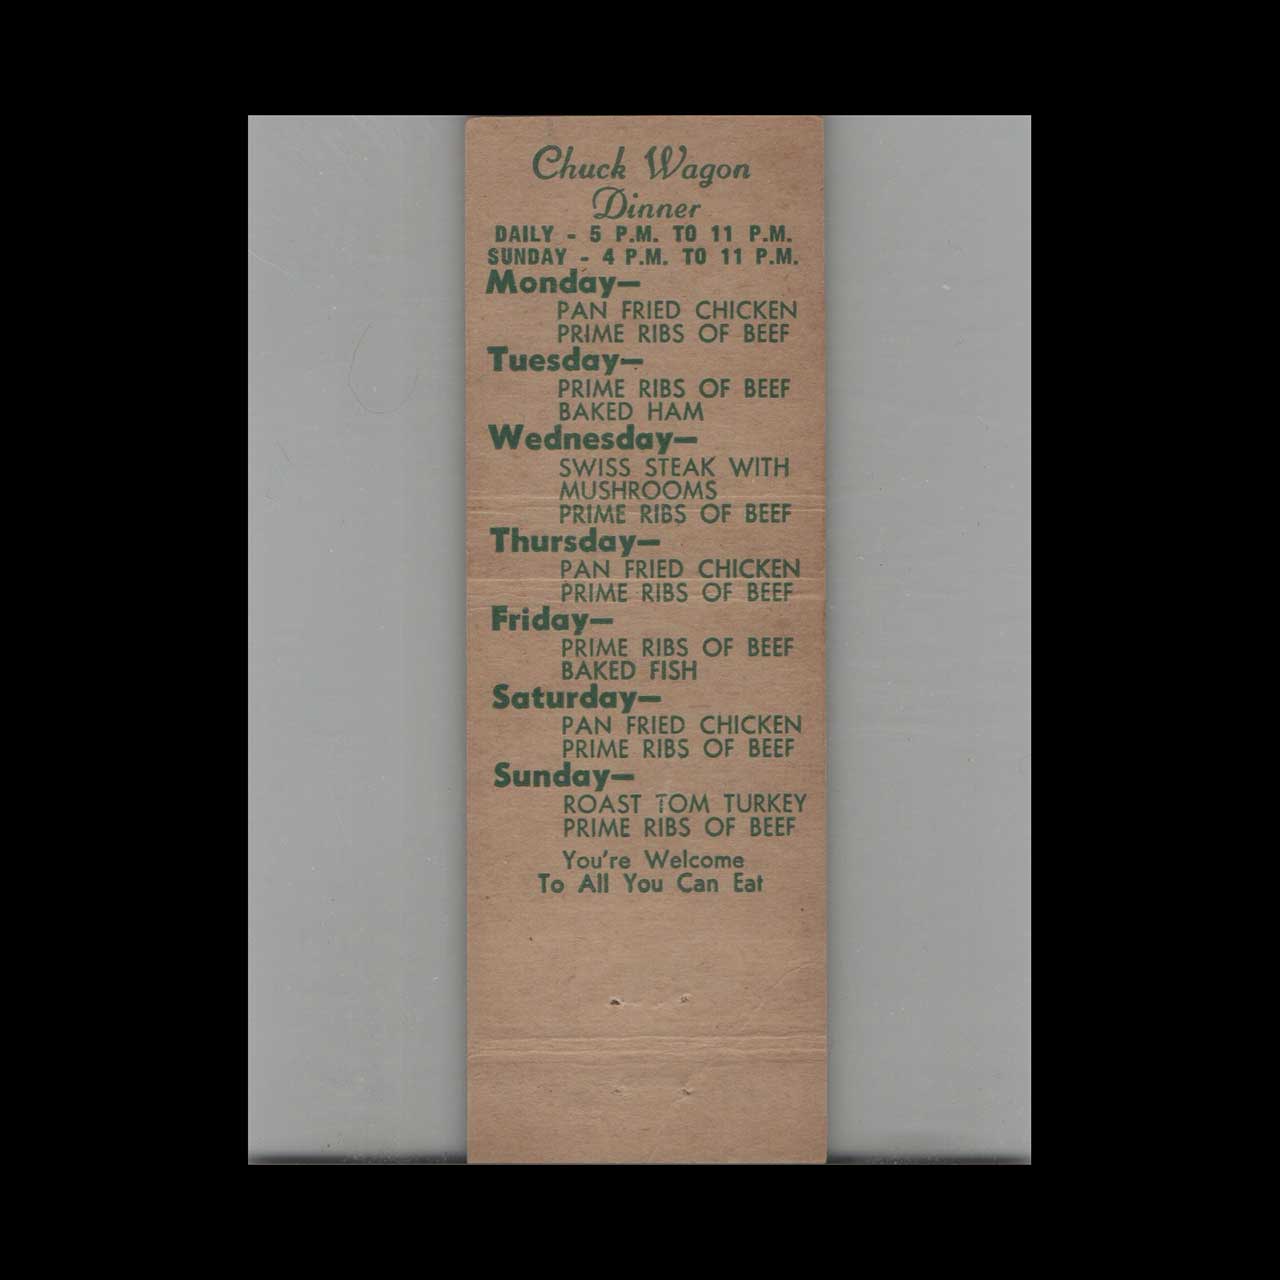 Chuck Wagon
Dinner
DAILY - 5 P.M. TO 11 P.M.
SUNDAY - 4 P.M. TO 11 P.M.
Monday—
PAN FRIED CHICKEN
PRIME RIBS OF BEEF
Tuesday—
PRIME RIBS OF BEEF
BAKED HAM
Wednesday—
SWISS STEAK WITH
MUSHROOMS
PRIME RIBS OF BEEF
Thursday—
PAN FRIED CHICKEN
PRIME RIBS OF BEEF
Friday—
PRIME RIBS OF BEEF
BAKED FISH
Saturday—
PAN FRIED CHICKEN
PRIME RIBS OF BEEF
Sunday—
ROAST TOM TURKEY
PRIME RIBS OF BEEF
You're Welcome
To All You Can Eat